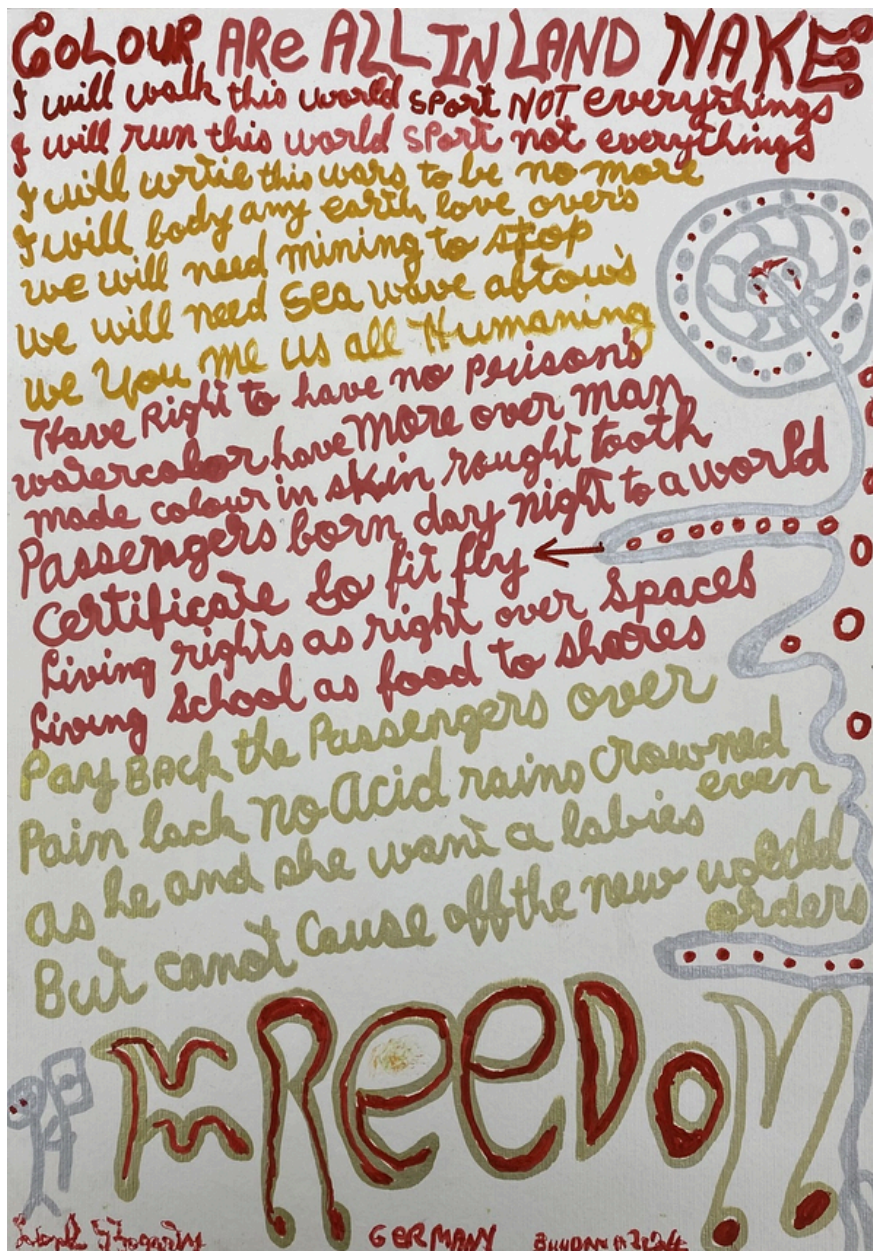 COLOUR ARe ALL IN LAND NAKE
I will walk this world sport NOT everythings
I will run this world sport not everythings
I will wrtie this wars to be no more
I will body any earth love over's
we will need mining to stop
we will need sea wave
we You Me us all Humaning
Have Right to have no prison's
watercolor have more over man
made colour in skin rought tooth
Passengers born day night to a world
Certificate to fit fly
Living rights as right over spaces
Living School as food to shores
Pay BACK the Passengers over
Pain lack no Acid rains Crowned
as he and she want a babies even
But canot Cause off the new world
orders
FReeDOM
GERMANY